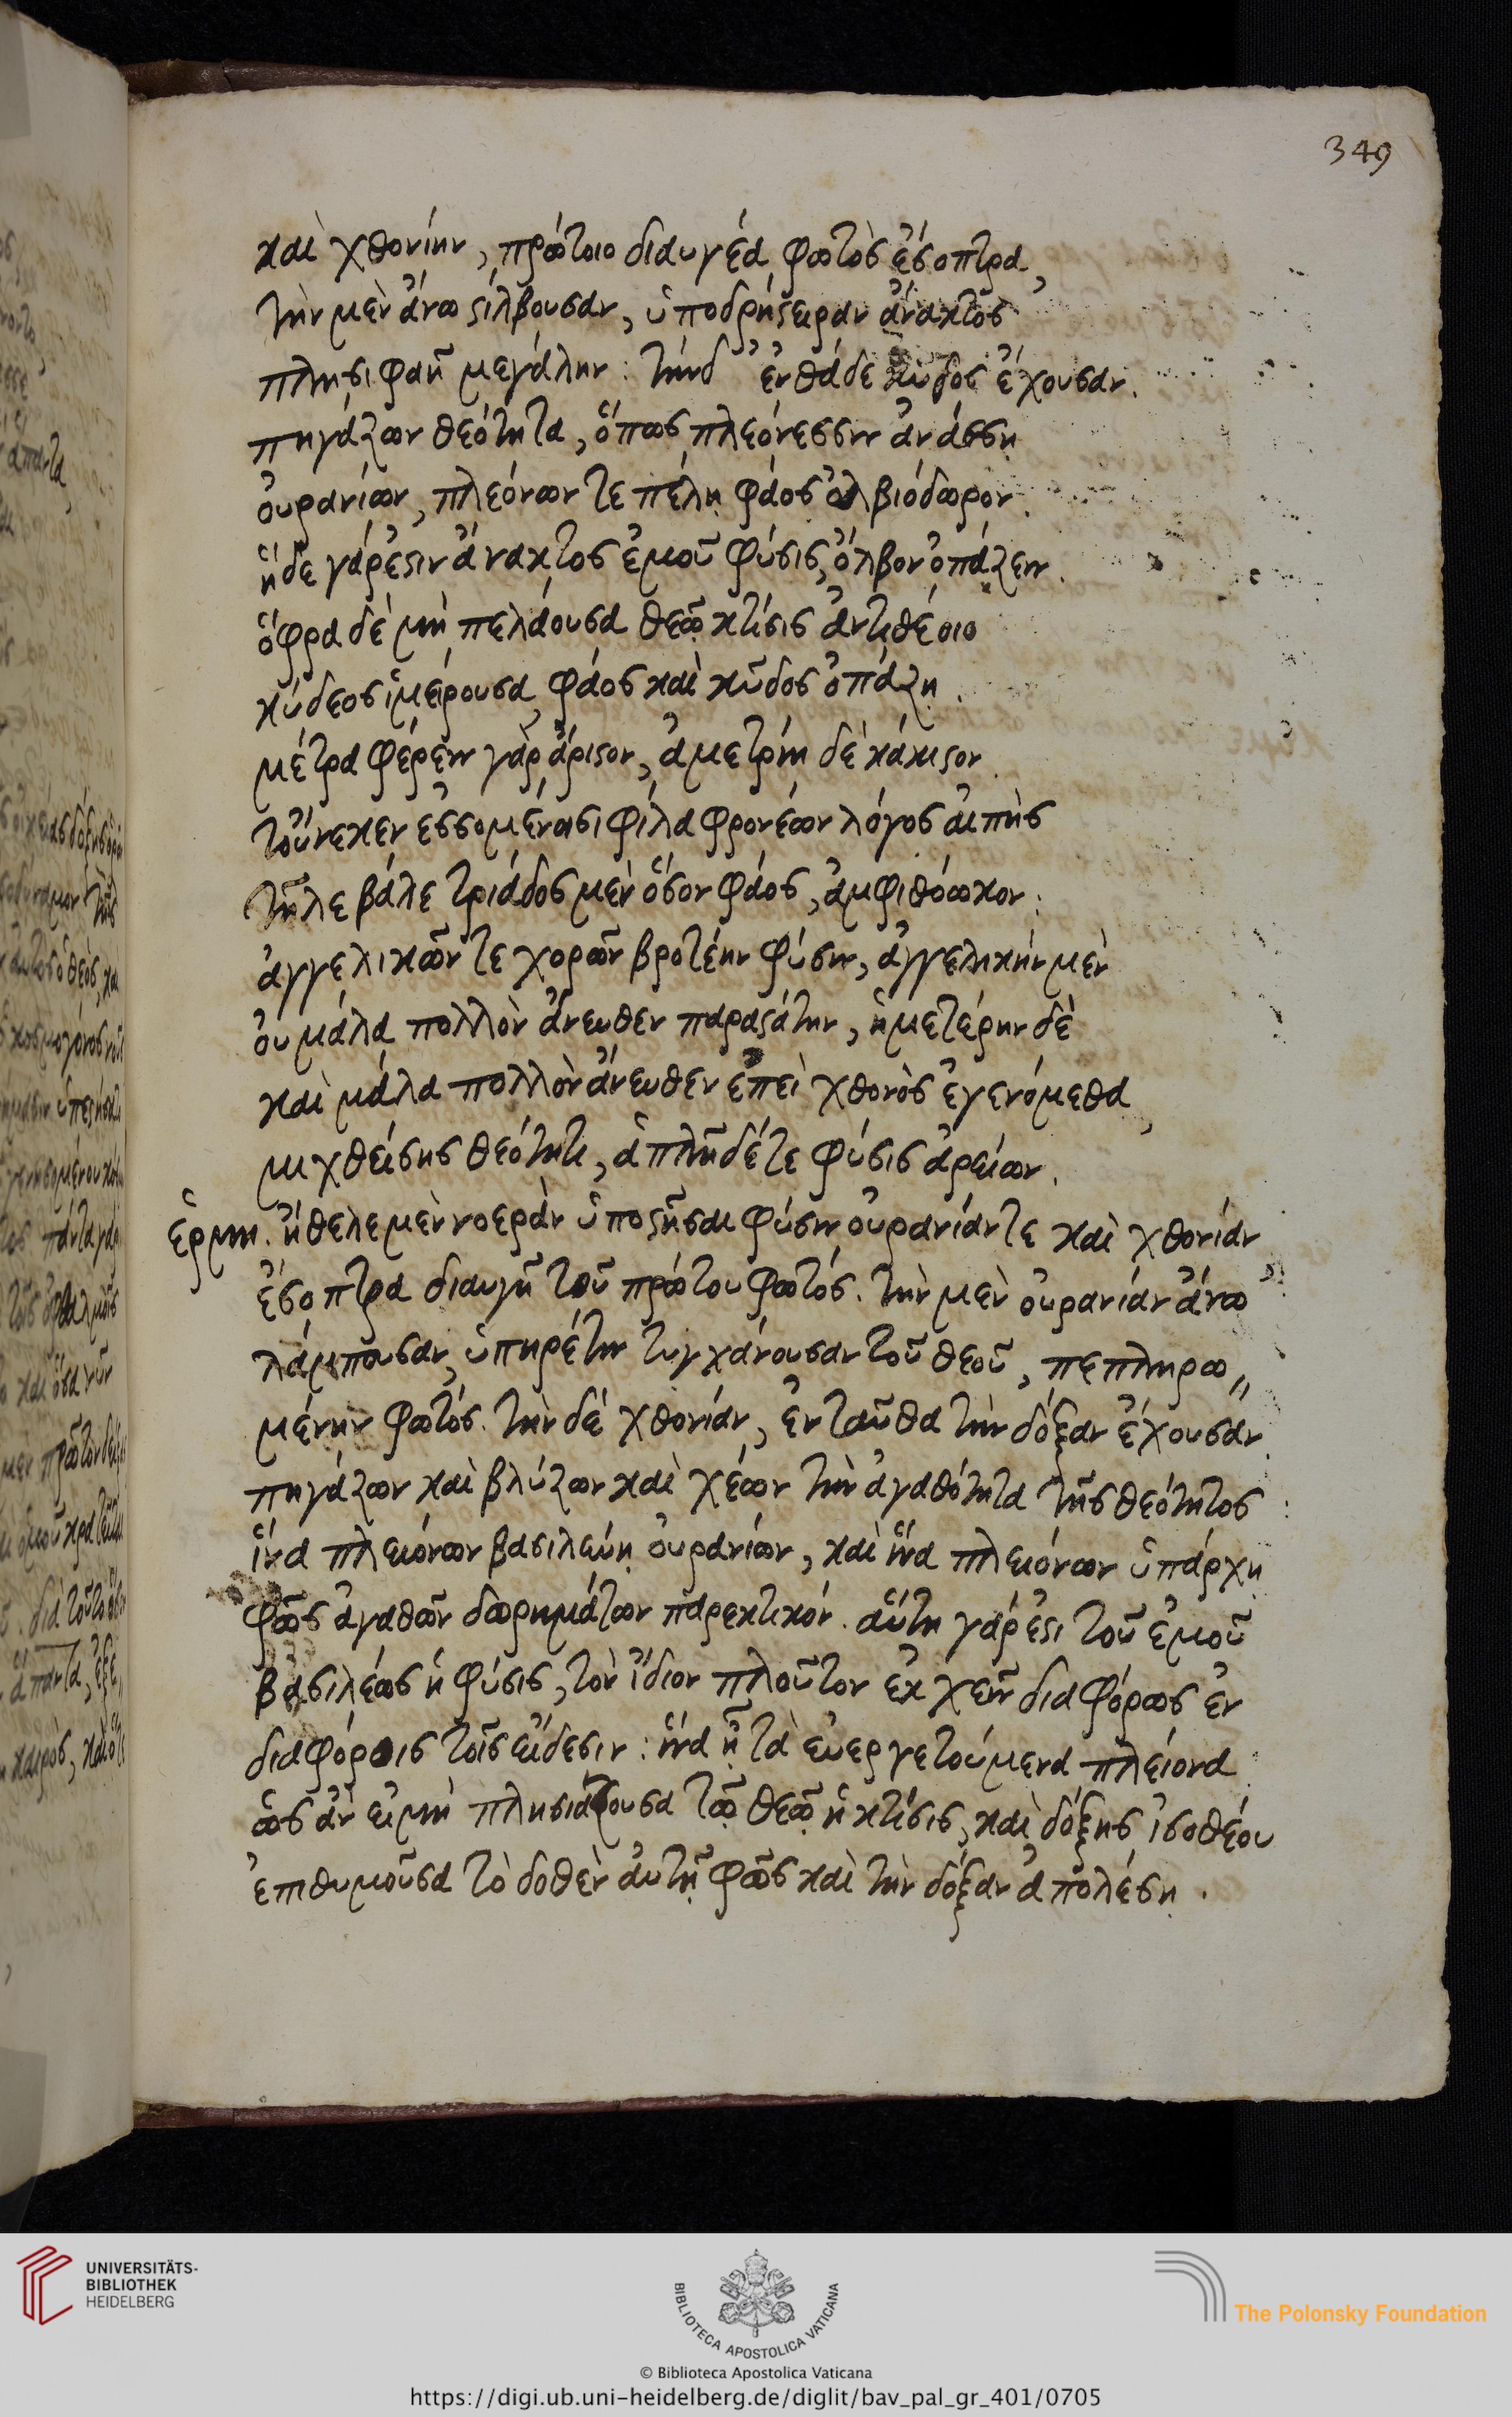 349
καὶ χθονίην, πρώτοιο διαυγέα φωτὸς ἔσοπτρα,
τὴν μὲν ἄνω στίλβουσαν, ὑποδρήστειραν ἄνακτος
πλησιφαῆ μεγάλην: τήνδ ἐνθάδε κῦδος ἔχουσαν.
πηγάζων θεότητα, ὅπως πλεόνεσσιν ἀνάσση
οὐρανίων, πλεόνων τε πέλῃ φάος ὀλβιόδωρον.
ἥδε γάρ ἐστιν ἄνακτος ἐμοῦ φύσις, ὄλβον ὀπάζειν.
ὄφρα δὲ μὴ πελάουσα θεῷ κτίσις ἀντιθέοιο
κύδεος ἱμείρουσα, φάος καὶ κῦδος ὀπάζῃ.
μέτρα φέρειν γὰρ ἄριστον, ἀμετρίη δὲ κάκιστον.
τοὔνεκεν ἐσσομένοισι φίλα φρονέων λόγος αἰπὺς
τῆλε βάλε τριάδος μὲν ὅσον φάος, ἀμφιθόωκον:
ἀγγελικῶν τε χορῶν βροτέην φύσιν, ἀγγελικὴν μὲν
οὐ μάλα πολλὸν ἄνευθεν παραστάτιν, ἡμετέρην δὲ
καὶ μάλα πολλὸν ἄνευθεν ἐπεὶ χθονὸς ἐγενόμεθα,
μιχθείσης θεότητι, ἁπλῆ δέ τε φύσις ἀρείων.
ἑρμη. ἤθελε μὲν νοερὰν ὑποστῆσαι φύσιν οὐρανίαν τε καὶ χθονίαν
ἔσοπτρα διαυγῆ τοῦ πρώτου φωτός. τὴν μὲν οὐρανίαν ἄνω
λάμπουσαν, ὑπηρέτιν τυγχάνουσαν τοῦ θεοῦ, πεπληρω„
μένην φωτός. τὴν δὲ χθονίαν, ἐνταῦθα τὴν δόξαν ἔχουσαν
πηγάζων καὶ βλύζων καὶ χέων τὴν ἀγαθότητα τῆς θεότητος:
ἵνα πλειόνων βασιλεύῃ οὐρανίων, καὶ ἵνα πλειόνων ὑπάρχῃ
φῶς ἀγαθῶν δωρημάτων παρεκτικόν. αὕτη γάρ ἐστι τοῦ ἐμοῦ
βασιλέως ἡ φύσις, τὸν ἴδιον πλοῦτον ἐκχεῖν διαφόρως ἐν
διαφόροις τοῖς εἴδεσιν: ἵνα ᾖ τὰ εὐεργετούμενα πλείονα.
ὡς ἂν εἰ μὴ πλησιάζουσα τῷ θεῷ ἡ κτίσις, καὶ δόξης ἰσοθέου
ἐπιθυμοῦσα τὸ δοθὲν αὐτῇ φῶς καὶ τὴν δόξαν ἀπολέσῃ.
UNIVERSITÄTS-
BIBLIOTHEK
HEIDELBERG
BIBLIOTECA APOSTOLICA VATICANA
The Polonsky Foundation
© Biblioteca Apostolica Vaticana
https://digi.ub.uni-heidelberg.de/diglit/bav_pal_gr_401/0705